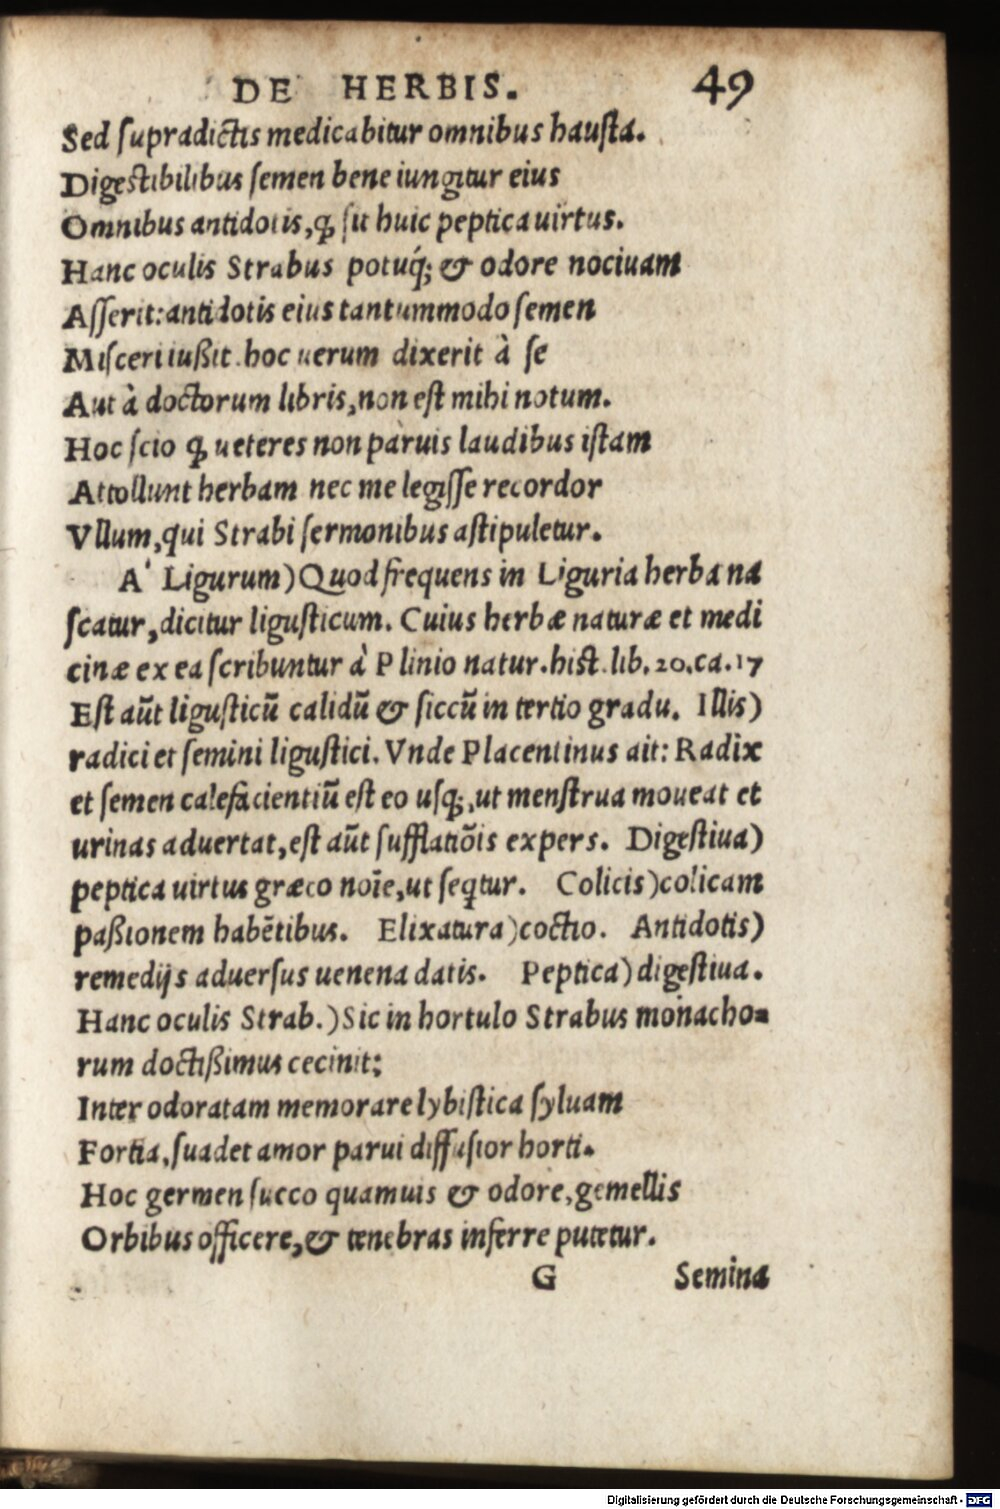 DE HERBIS. 49
Sed ſupradictis medicabitur omnibus hauſta.
Digeſtibilibus ſemen bene iungitur eius
Omnibus antidotis, ꝙ ſit huic peptica uirtus.
Hanc oculis Strabus potuq́; & odore nociuam
Aſſerit: antidotis eius tantummodo ſemen
Miſceri iußit. hoc uerum dixerit à ſe
Aut à doctorum libris, non eſt mihi notum.
Hoc ſcio ꝙ ueteres non paruis laudibus iſtam
Attollunt herbam nec me legiſſe recordor
Vllum, qui Strabi ſermonibus aſtipuletur.
A' Ligurum) Quod frequens in Liguria herba na
ſcatur, dicitur liguſticum. Cuius herbæ naturæ et medi
cinæ ex ea ſcribuntur à Plinio natur. hiſt. lib. 20. ca. 17
Eſt aūt liguſticū calidū & ſiccū in tertio gradu. Illis)
radici et ſemini liguſtici. Vnde Placentinus ait: Radix
et ſemen calefacientiū eſt eo uſq;, ut menſtrua moueat et
urinas aduertat, eſt aūt ſufflatiōis expers. Digeſtiua)
peptica uirtus græco noīe, ut ſeqtur. Colicis) colicam
paßionem habētibus. Elixatura) coctio. Antidotis)
remedijs aduerſus uenena datis. Peptica) digeſtiua.
Hanc oculis Strab.) Sic in hortulo Strabus monacho-
rum doctißimus cecinit:
Inter odoratam memorare lybiſtica ſyluam
Fortia, ſuadet amor parui diffuſior horti.
Hoc germen ſucco quamuis & odore, gemellis
Orbibus officere, & tenebras inferre putetur.
G Semina
Digitalisierung gefördert durch die Deutsche Forschungsgemeinschaft - DFG